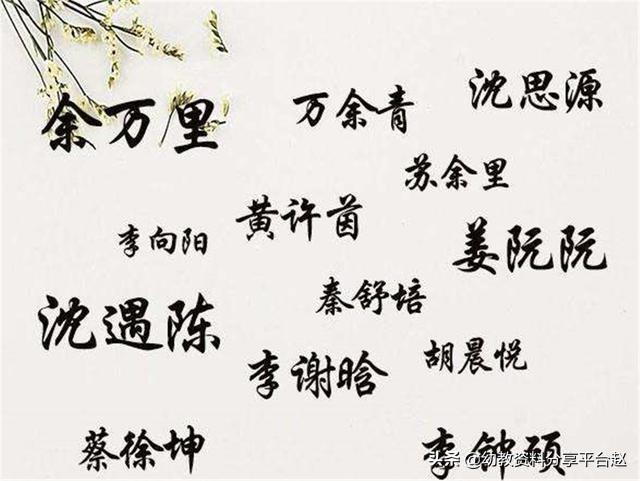 沈思源
余万里
万余青
苏余里
黄许茵
李向阳
姜阮阮
秦舒培
沈遇陈
胡晨悦
李谢晗
蔡徐坤
李钟硕
头条 @幼教资料分享平台赵